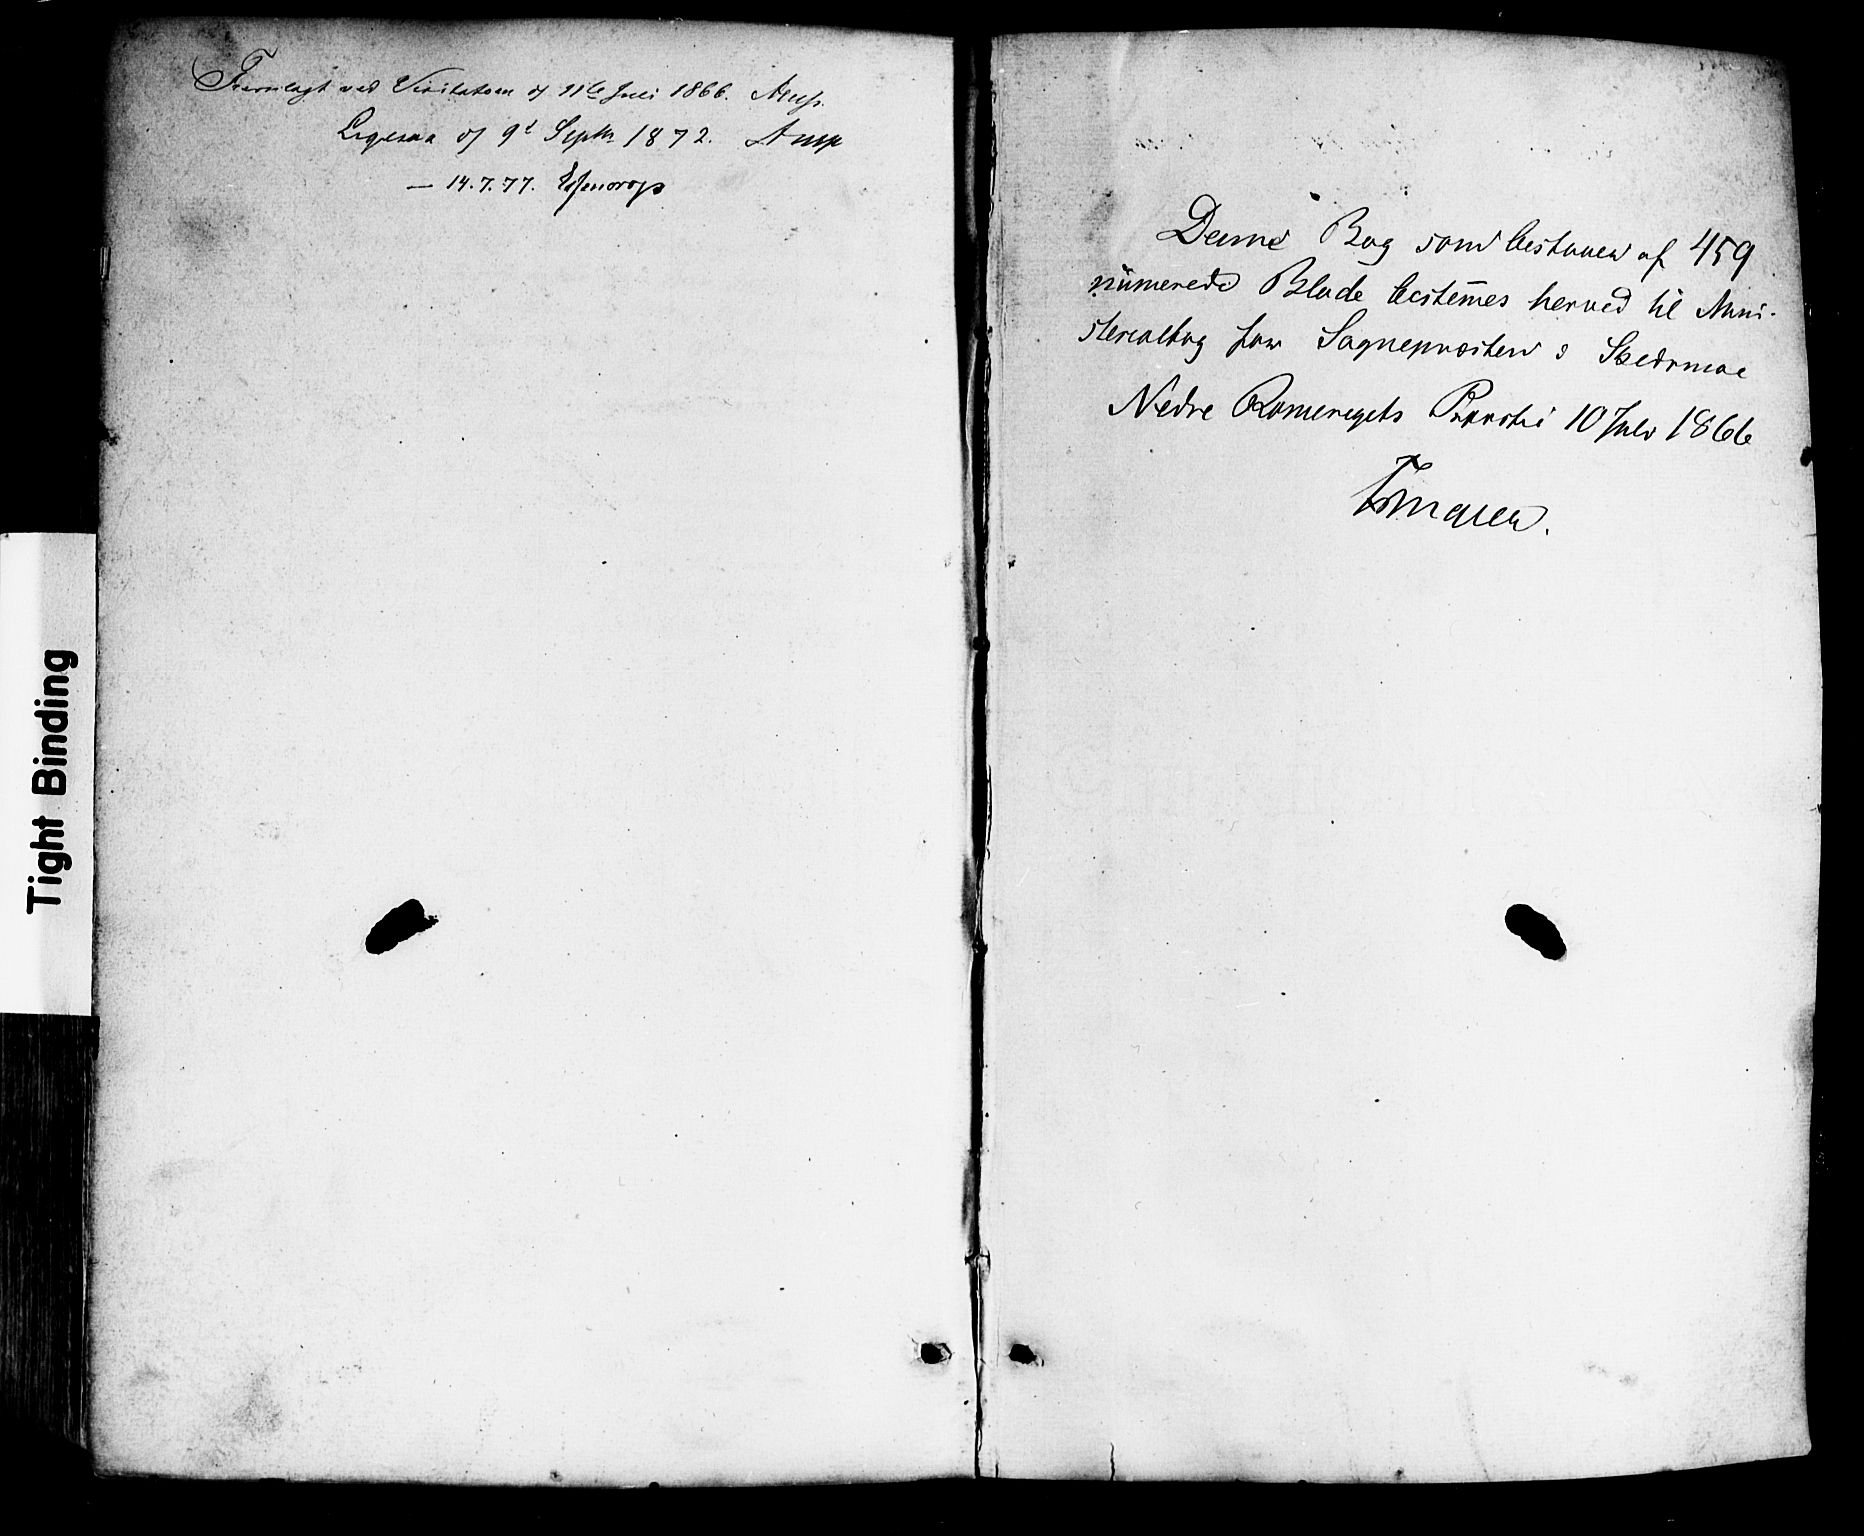 Fremlagt ved Visitatsen d 11te Juli 1866. Arup.
Ligesaa d 9d Septbr 1872. Arup
— 14.7.77. Essendrop
Tight Binding
Denne Bog som bestaaer af 459
numerede Blade bestem̄es herved til Mini-
sterialbog for Sognepræsten i Skedsmoe
Nedre Romeriges Provsti 10 Juli 1866